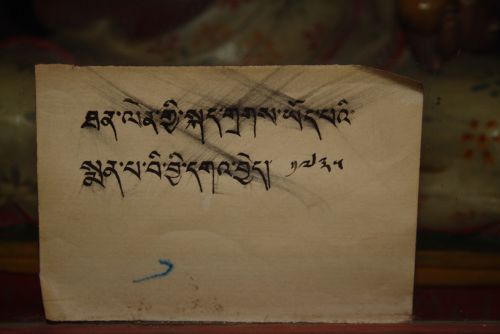 ཐན་ལེན་གྱི་སྐད་གྲགས་ཡོད་པའི་
སྨན་པ་བི་བྱི་དགའ་བྱེད།